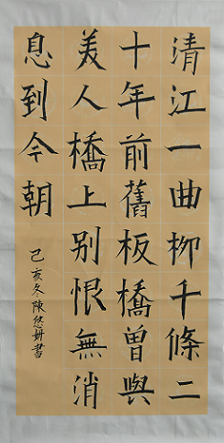 清江一曲柳千條二
十年前舊板橋曾與
美人橋上别恨無消
息到今朝
己亥冬陳悠妍書